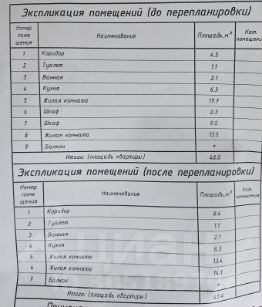 Экспликация помещений (до перепланировки)
Номер поме щения Наименование Площадь, м² Кат. помещени
1 Коридор 6.5
2 Туалет 1.1
3 Ванная 2.1
4 Кухня 6.3
5 Жилая комната
6 Шкаф 0.3
7 Шкаф 0.5
8 Жилая комната 13.5
9 Балкон *
Итого: (площадь квартиры) 46.0
Экспликация помещений (после перепланировки)
Номер поме щения Наименование Площадь, м² Кат. помещения
1 Коридор 8.4
2 Туалет 1.1
3 Ванная 2.1
4 Кухня 6.3
5 Жилая комната 13.4
6 Жилая комната 14.1
7 Балкон *
Итого: (площадь квартиры) 45.4